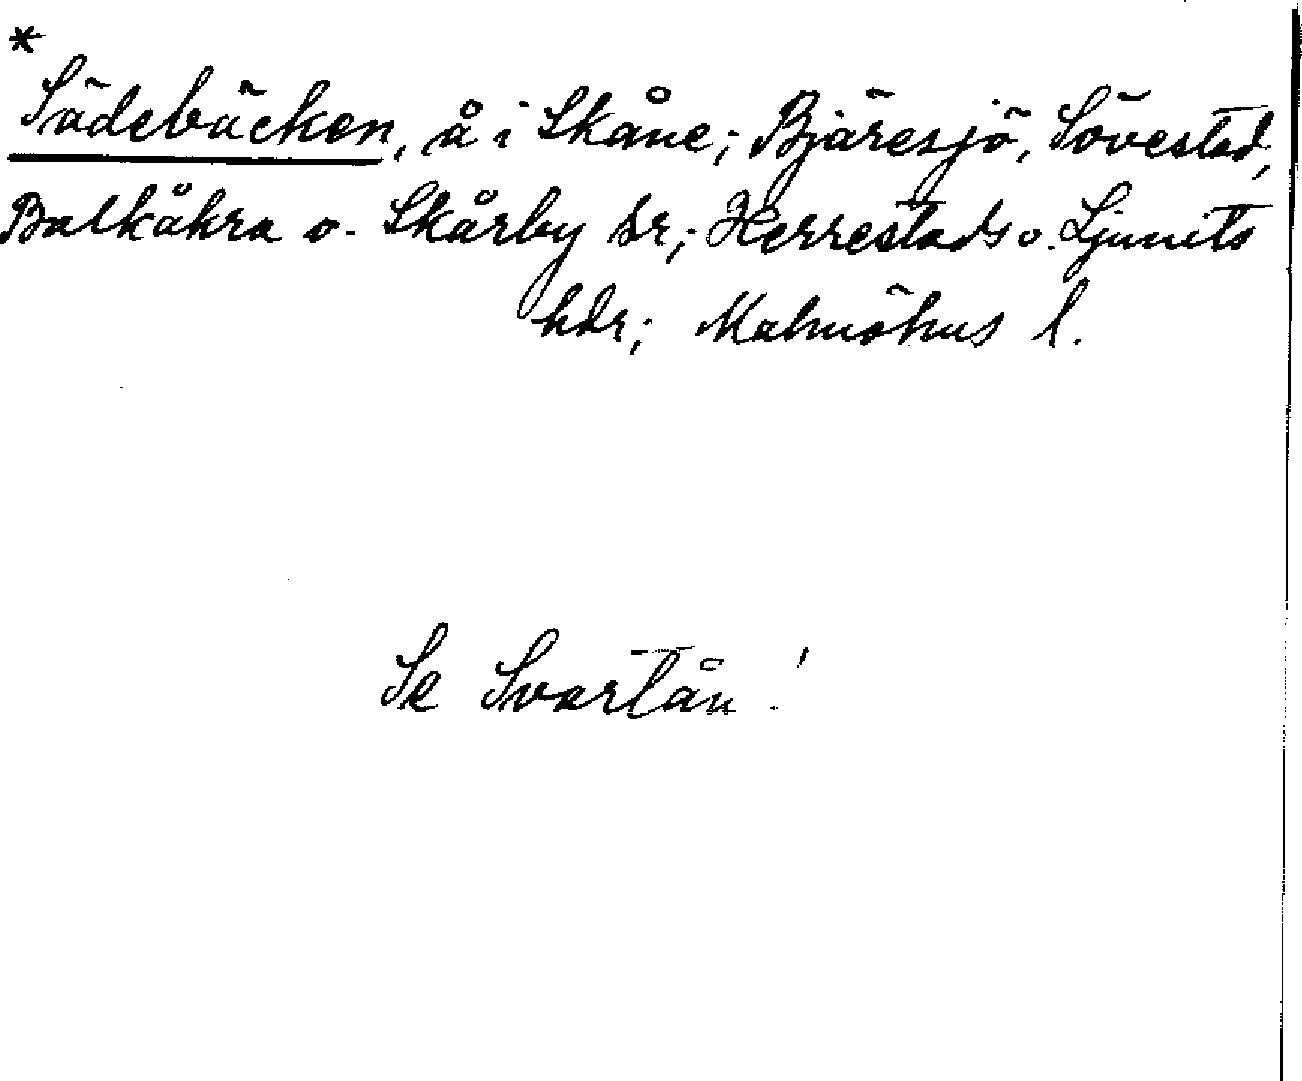 *
Sädebäcken, å i Skåne; Bjäresjö, Sövestad,
Balkåkra o. Skårby sr; Herrestads o. Ljunits
hdr; Malmöhus l.
Se Svartån!